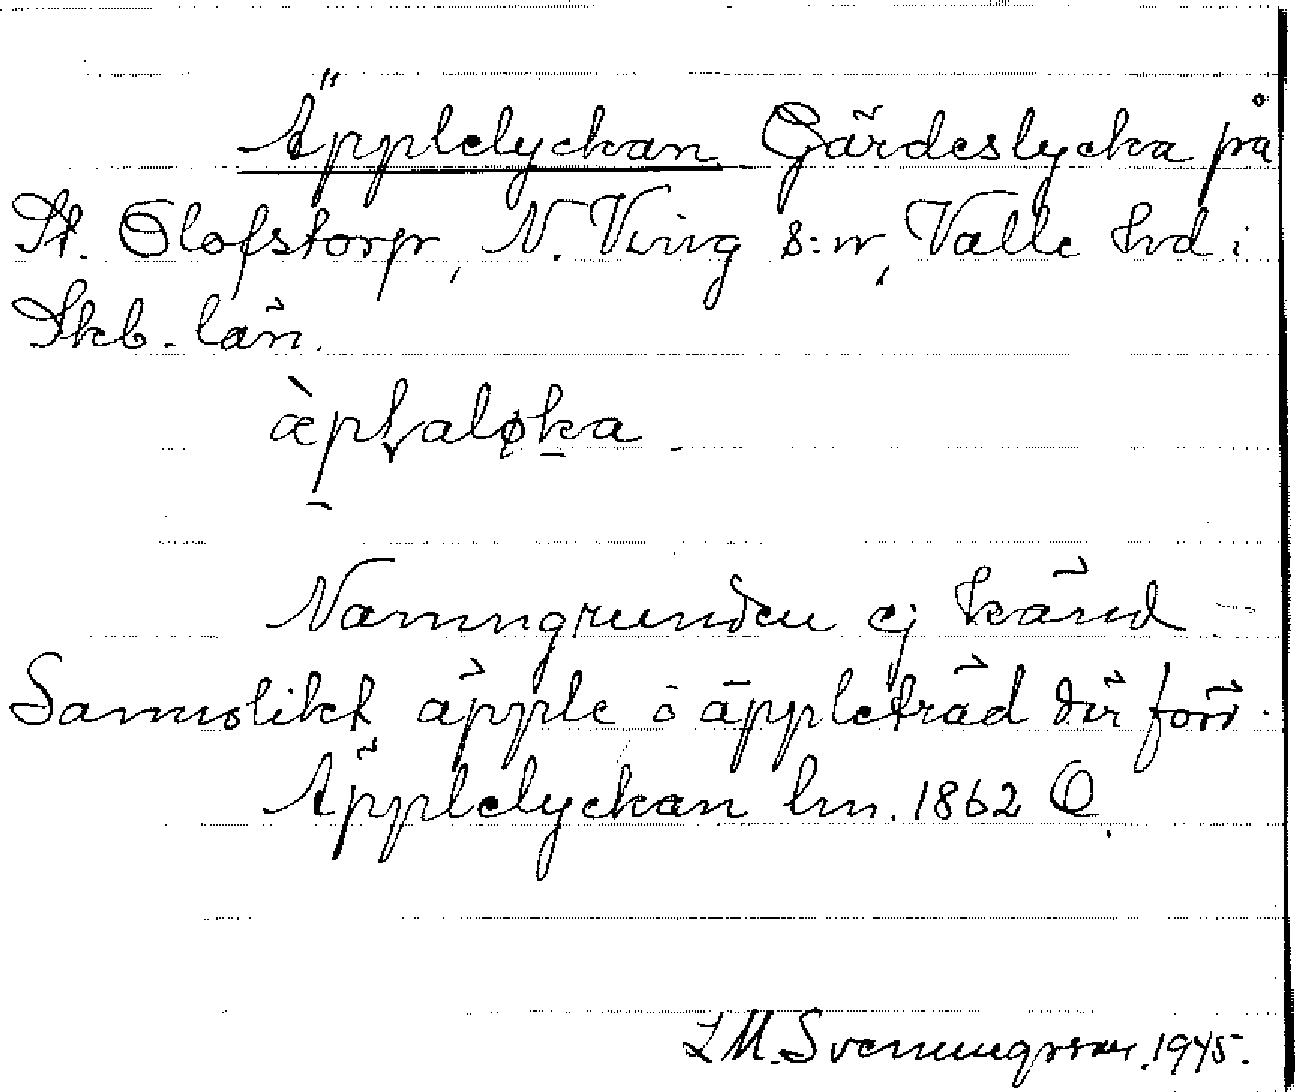 Äpplelyckan Gärdeslycka på
St. Olofstorp, N. Ving s:n, Valle hd i
Skb. län.
æ̀pḷaløka
Namngrunden ej känd
Sannolikt äpple o äppleträd där förr.
Äpplelyckan lm. 1862 O
LM. Svenungsson. 1945.